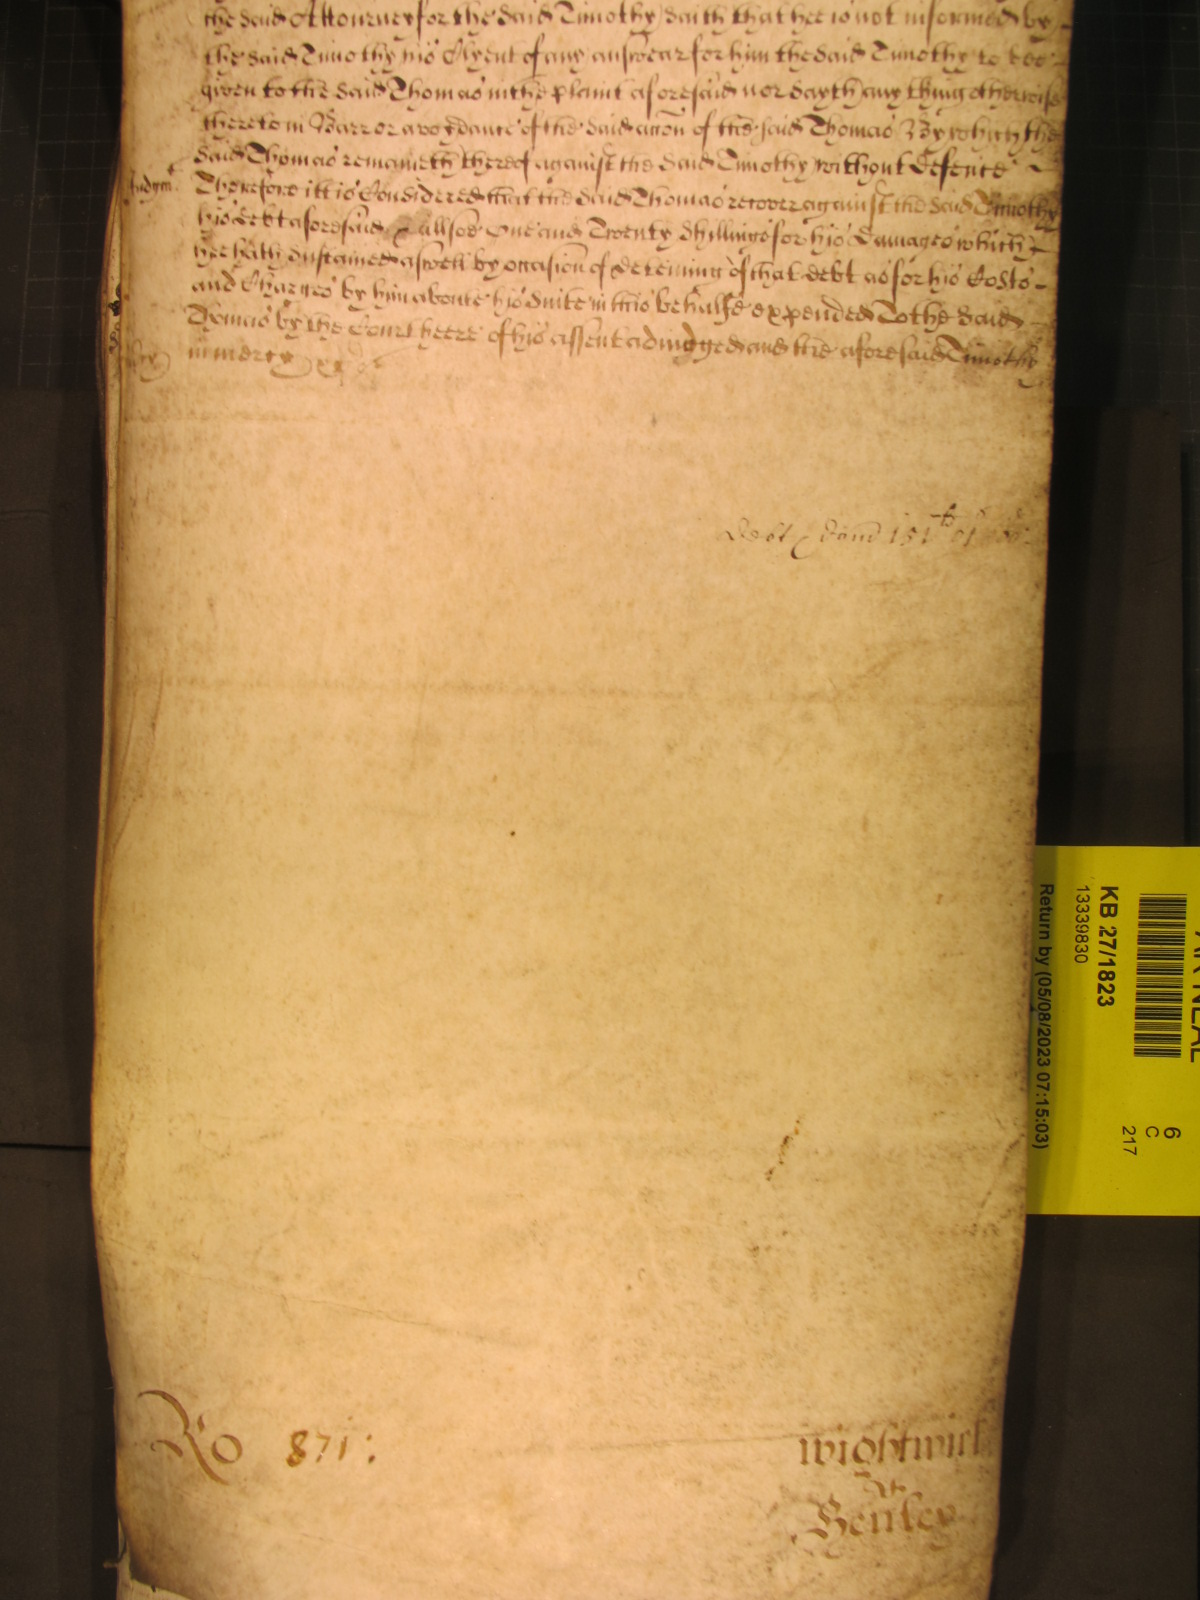 the said Attourney for the said Timothy saith that hee is not informed by
the said Timothy his Clyent of any answear for him the said Timothy to bee
given to the said Thomas in the plaint aforesaid nor sayth any thing otherwise
thereto in Barr or avoydance of the said accon of the said Thomas By which the
said Thomas remaineth thereof against the said Timothy without defence
Judgmt Therefore itt is Considered that the said Thomas recover against the said Timothy
his debt aforesaid & allsoe One and Twenty shillings for his damages which
hee hath sustained aswell by occasion of deteining of that debt as for his Costs
and Charges by him aboute his suite in this behalfe expended To the said
Thomas by the Court heere of his assent adiudged and the aforesaid Timothy
mcy in mercy &c
Debt & dam 151li 01s
Ro 871:
wightwick
Henley
KB 27/1823
13339830
Return by (05/08/2023 07:15:03)
6
C
217